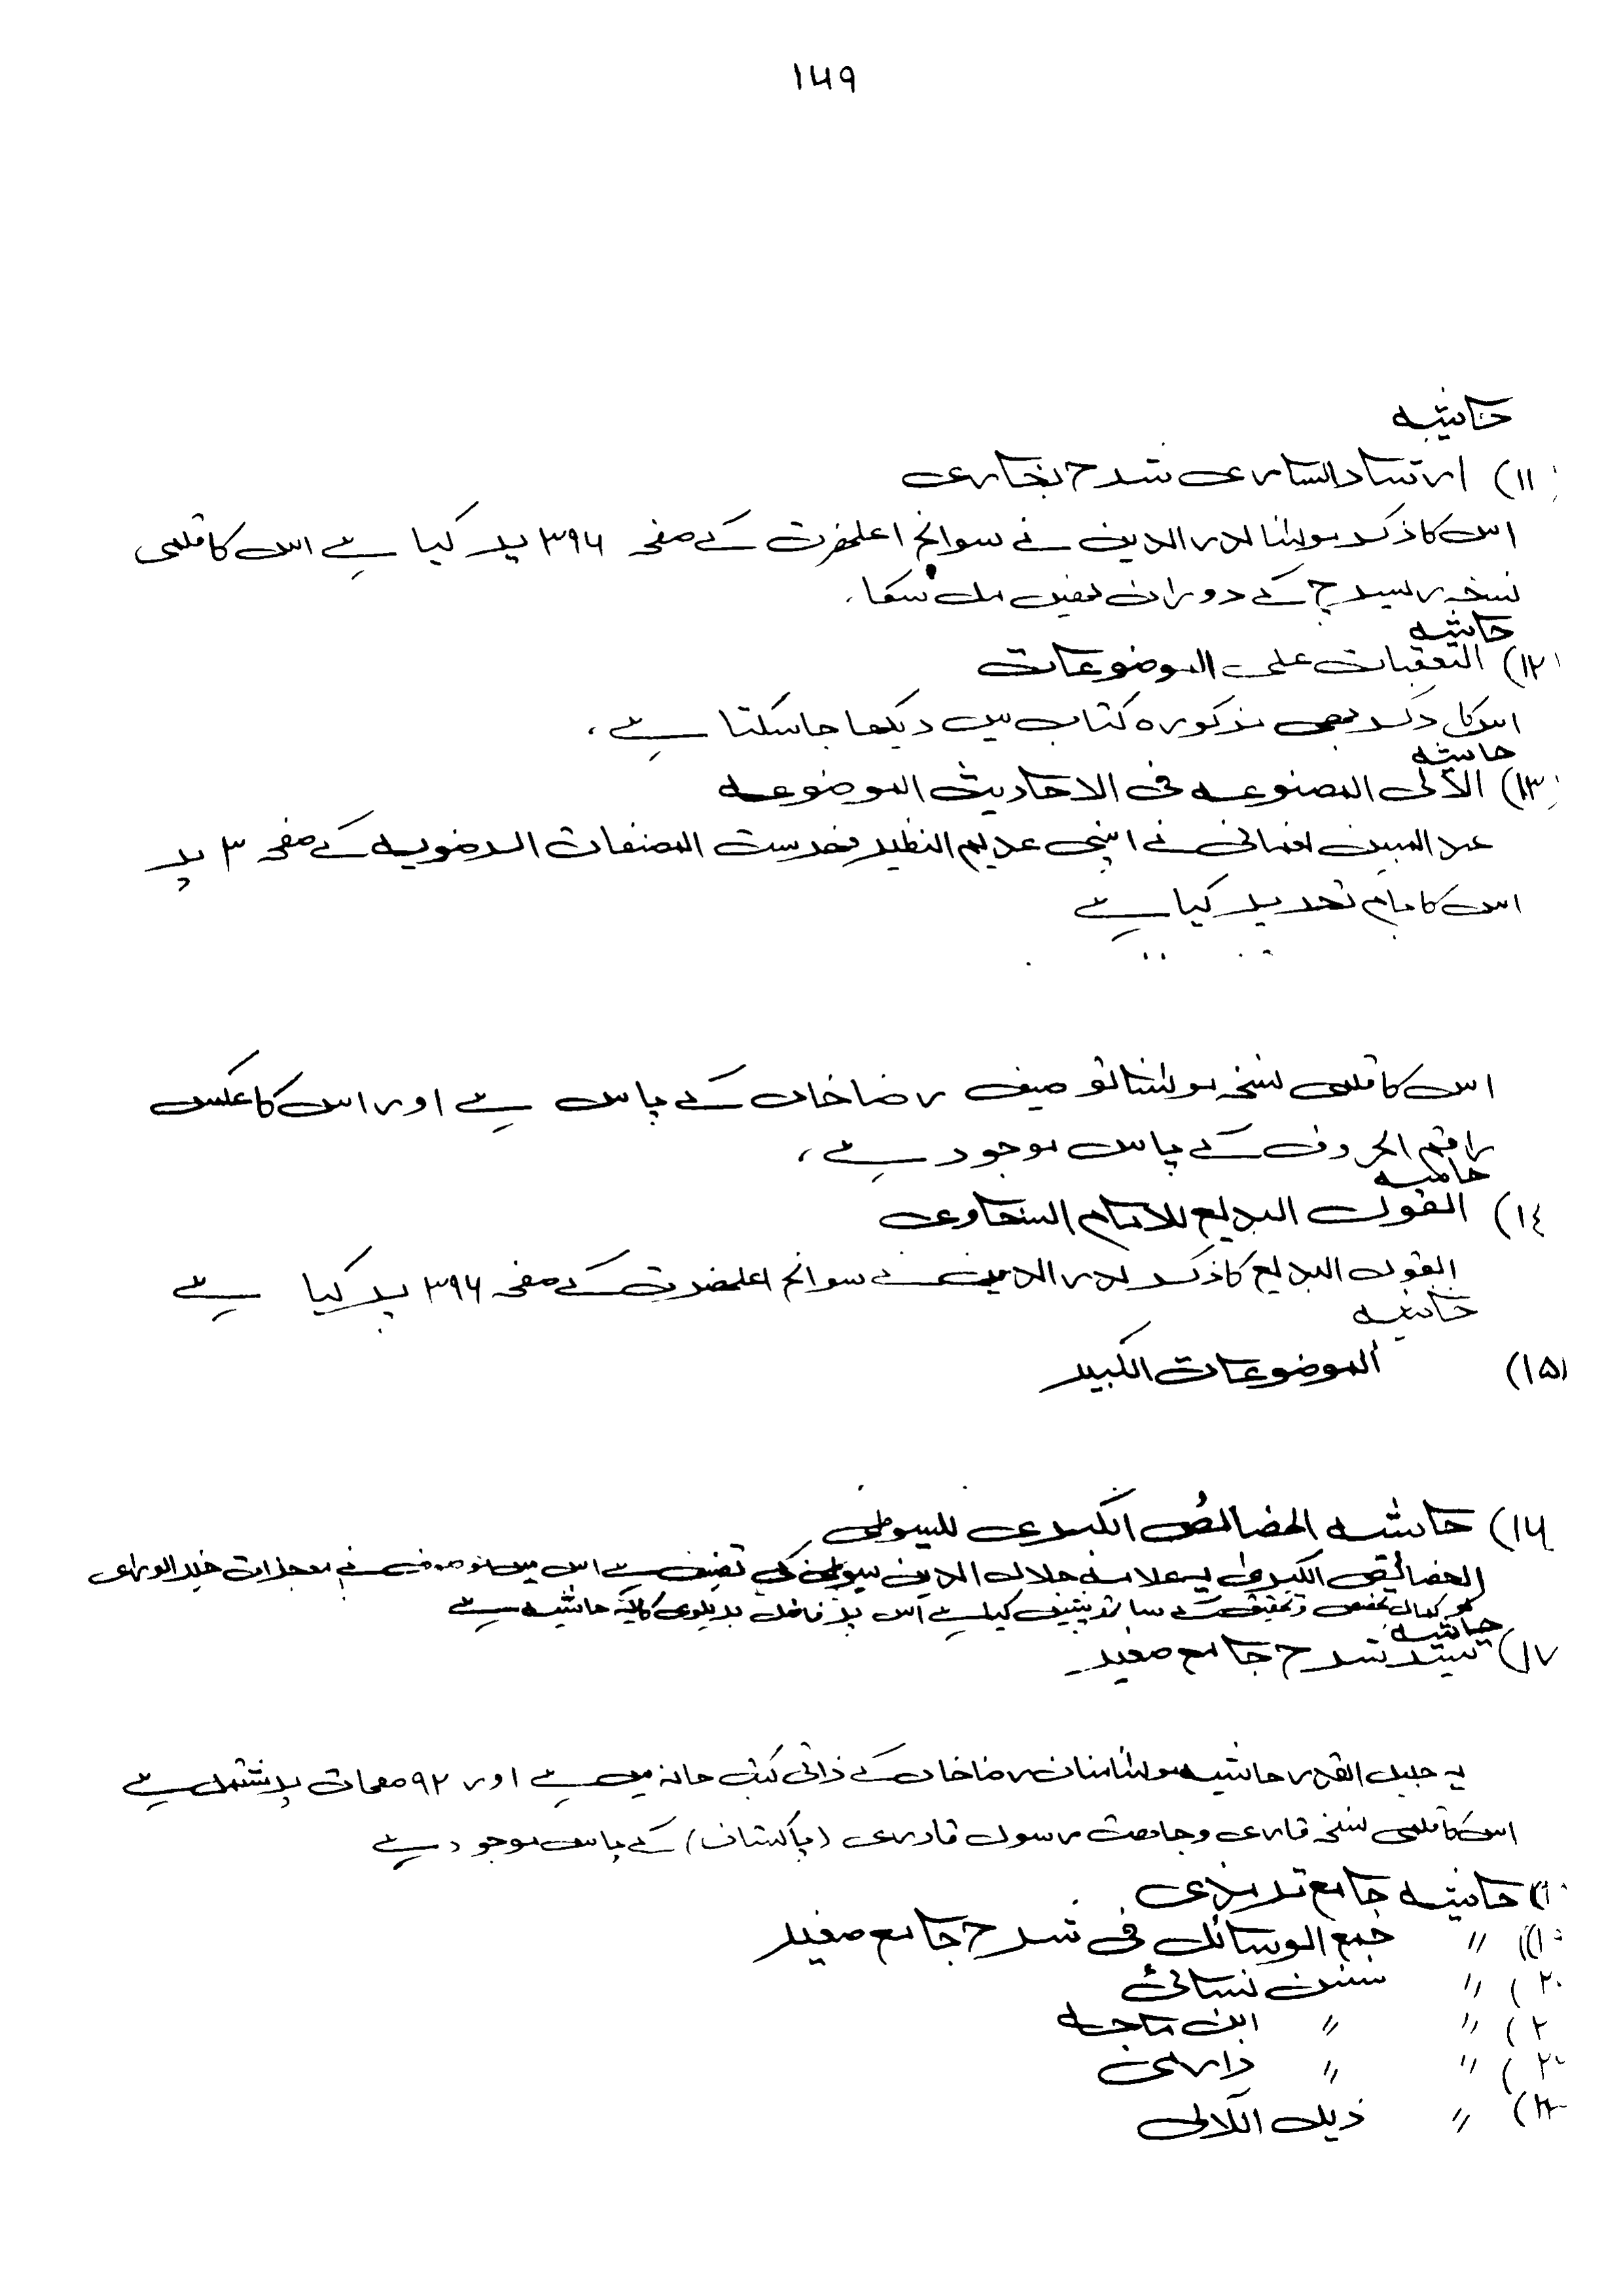 ۱۶۹
حاشیہ
(۱۱) ارشاد الساری شرح بخاری
اس کا ذکر مولٰنا بدر الدین نے سوانح اعلحضرت کے صفحہ ۳۹۶ پر کیا ہے اس کا قلمی
نسخہ ریسرچ کے دوران نھیں مل سکا۔
حاشیہ
(۱۲) التعقبات علی الموضوعات
اس کا ذکر بھی مذکورہ کتاب میں دیکھا جاسکتا ہے،
حاشیہ
(۱۳) الآلی المصنوعہ فی الاحادیث الموضوعہ
عبد المبین نعمانی نے اپنی عدیم النظیر فھرست المصنفات الرضویہ کے صفحہ ۳ پر
اس کا نام تحریر کیا ہے
اس کا قلمی نسخہ مولٰنا توصیف رضا خاں کے پاس ہے اور اس کا عکس
راقم الحروف کے پاس موجود ہے،
حاشیہ
(۱٤) القول البدیع للامام السخاوی
القول البدیع کا ذکر بدر الدین نے سوانح اعلحضرت کے صفحہ ۳۹۶ پر کیا ہے
حاشیہ
(۱۵) الموضوعات الکبیر
(۱۶) حاشیہ الخصائص الکبری للسیوطی
الخصائص الکبری یہ علامہ جلال الدین سیوطی کی تصنیف ہے اس میں موصوف نے معجزات خیر الوری
کو کمال تحقیق کے ساتھ پیش کیا ہے اس پر فاضل بریلوی کا یہ حاشیہ ہے
حاشیہ
(۱۷) شرح جامع صغیر
یہ جلیل القدر حاشیہ مولٰنا منان رضا خاں کے ذاتی کتب خانہ میں ہے اور ۹۲ صفحات پر مشتمل ہے
اس کا قلمی نسخہ قاری وجاھت رسول قادری (پاکستان) کے پاس موجود ہے
حاشیہ جامع ترمذی
〃 جمع الوسائل فی شرح جامع صغیر
(۲۰ 〃 سنن نسائی
(۲ 〃 〃 ابن ماجہ
(۲ 〃 〃 دارمی
〃 ذیل اللآلی